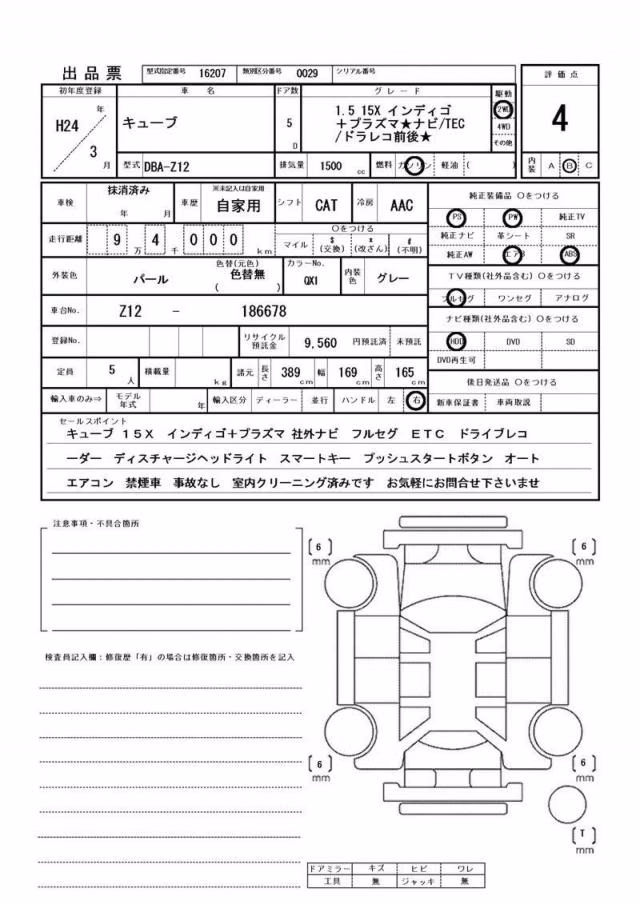 出品票 型式指定番号 16207 類別区分番号 0029 シリアル番号
評価点
4
内装 A B C
初年度登録 車名 ドア数 グレード 駆動
H24 年
3 月
キューブ
5 D
1.5 15X インディゴ
+プラズマ★ナビ/TEC
/ドラレコ前後★
2WD
4WD
その他
型式 DBA-Z12 排気量 1500 cc 燃料 ガソリン 軽油 ( )
車検 抹消済み 年 月 車歴 ※未記入は自家用 自家用 シフト CAT 冷房 AAC
走行距離 9万 4千 0 0 0 km
〇をつける
マイル $(交換) x(改ざん) #(不明)
外装色 パール 色替(元色) 色替無 ( ) カラーNo. QX1 内装色 グレー
車台No. Z12 - 186678
登録No. リサイクル預託金 9,560 円預託済 未預託
定員 5 人 積載量 kg 諸元 長さ 389 cm 幅 169 cm 高さ 165 cm
輸入車のみ⇒ モデル年式 年 輸入区分 ディーラー 並行 ハンドル 左 右
純正装備品 〇をつける
PS PW 純正TV
純正ナビ 革シート SR
純正AW エアB ABS
TV種類(社外品含む) 〇をつける
フルセグ ワンセグ アナログ
ナビ種類(社外品含む) 〇をつける
HDD DVD SD
DVD再生可
後日発送品 〇をつける
新車保証書 車両取説
セールスポイント
キューブ 15X インディゴ+プラズマ 社外ナビ フルセグ ETC ドライブレコ
ーダー ディスチャージヘッドライト スマートキー プッシュスタートボタン オート
エアコン 禁煙車 事故なし 室内クリーニング済みです お気軽にお問合せ下さいませ
注意事項・不具合箇所
検査員記入欄:修復歴「有」の場合は修復箇所・交換箇所を記入
[6] mm
[6] mm
[6] mm
[6] mm
[T] mm
ドアミラー キズ ヒビ ワレ
工具 無 ジャッキ 無